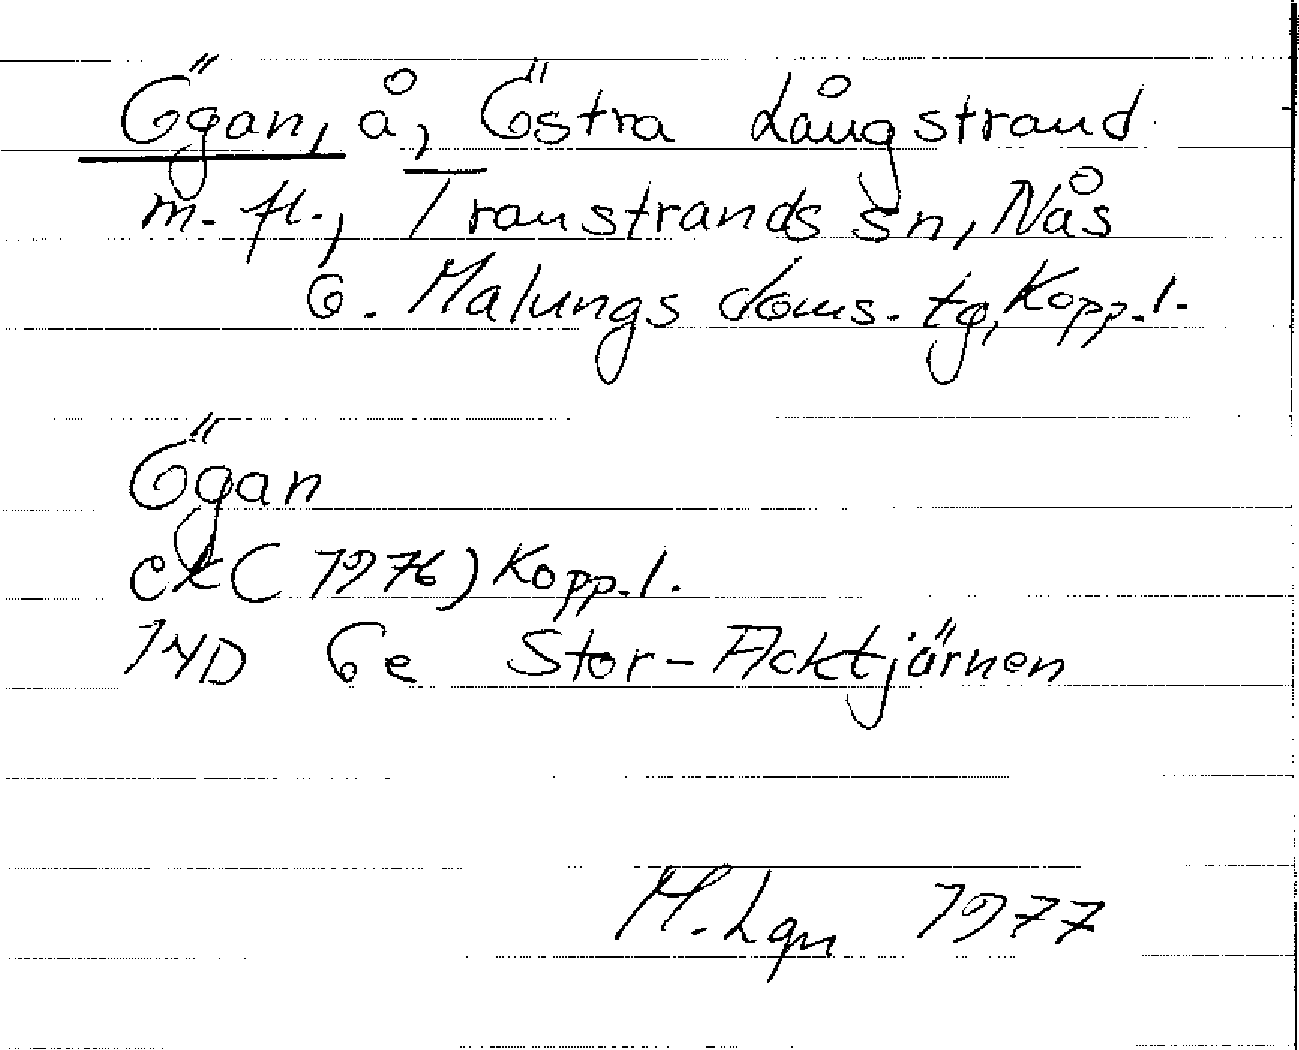 Ögan, å, Östra Långstrand
m. fl., Transtrands sn, Nås
o. Malungs doms. tg, Kopp. l.
Ögan
ek (1976) Kopp. l.
14D 6e Stor-Acktjärnen
M. Lgn 1977